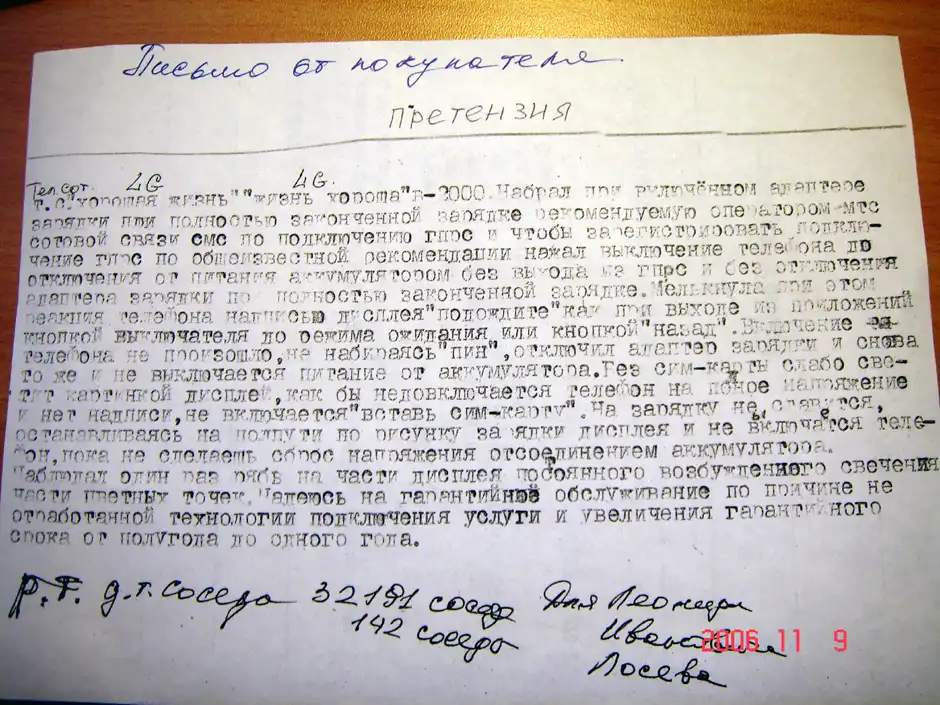 Письмо от покупателя.
претензия
Тел.сот. LG LG.
т.с."хорошая жизнь""жизнь хороша"в-3000.Набрал при включённом адаптере
зарядки при полностью законченной зарядке рекомендуемую оператором мтс
сотовой связи смс по подключению гпрс и чтобы зарегистрировать подклю-
чение гпрс по общеизвестной рекомендации нажал выключение телефона до
отключения от питания аккумулятором без выхода из гпрс и без отключения
адаптера зарядки по полностью законченной зарядке.Мелькнула при этом
реакция телефона надписью дисплея"подождите"как при выходе из приложений
кнопкой выключателя до режима ожидания или кнопкой"назад".Включение
телефона не произошло,не набираясь"пин",отключил адаптер зарядки и снова
то же и не выключается питание от аккумулятора.Без сим-карты слабо све-
тит картинкой дисплей,как бы недовключается телефон на полное напряжение
и нет надписи,не включается"вставь сим-карту".На зарядку не ставится,
останавливаясь на полпути по рисунку зарядки дисплея и не включается теле-
фон,пока не сделаешь сброс напряжения отсоединением аккумулятора.
Наблюдал один раз рябь на части дисплея постоянного возбужденного свечения
части цветных точек.Надеюсь на гарантийное обслуживание по причине не
отработанной технологии подключения услуги и увеличения гарантийного
срока от полугода до одного года.
р.т. д.т. соседа 32191 соседа Для Леонида
142 соседы
Лосева
2006 11 9